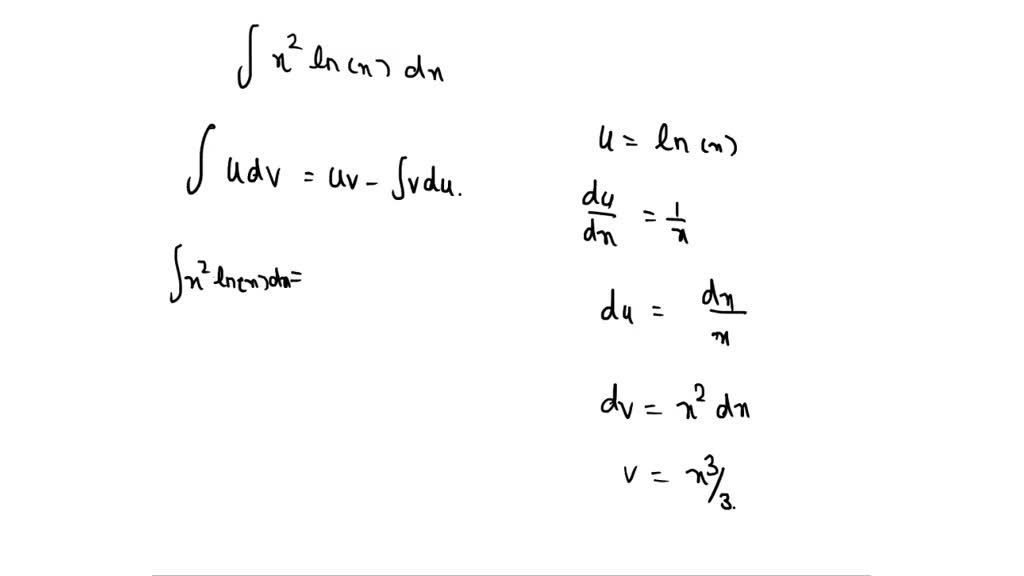 ∫ x² ln(x) dx
∫ u dv = uv - ∫ v du.
∫ x² ln(x) dx =
u = ln(x)
du/dx = 1/x
du = dx/x
dv = x² dx
v = x³/3.